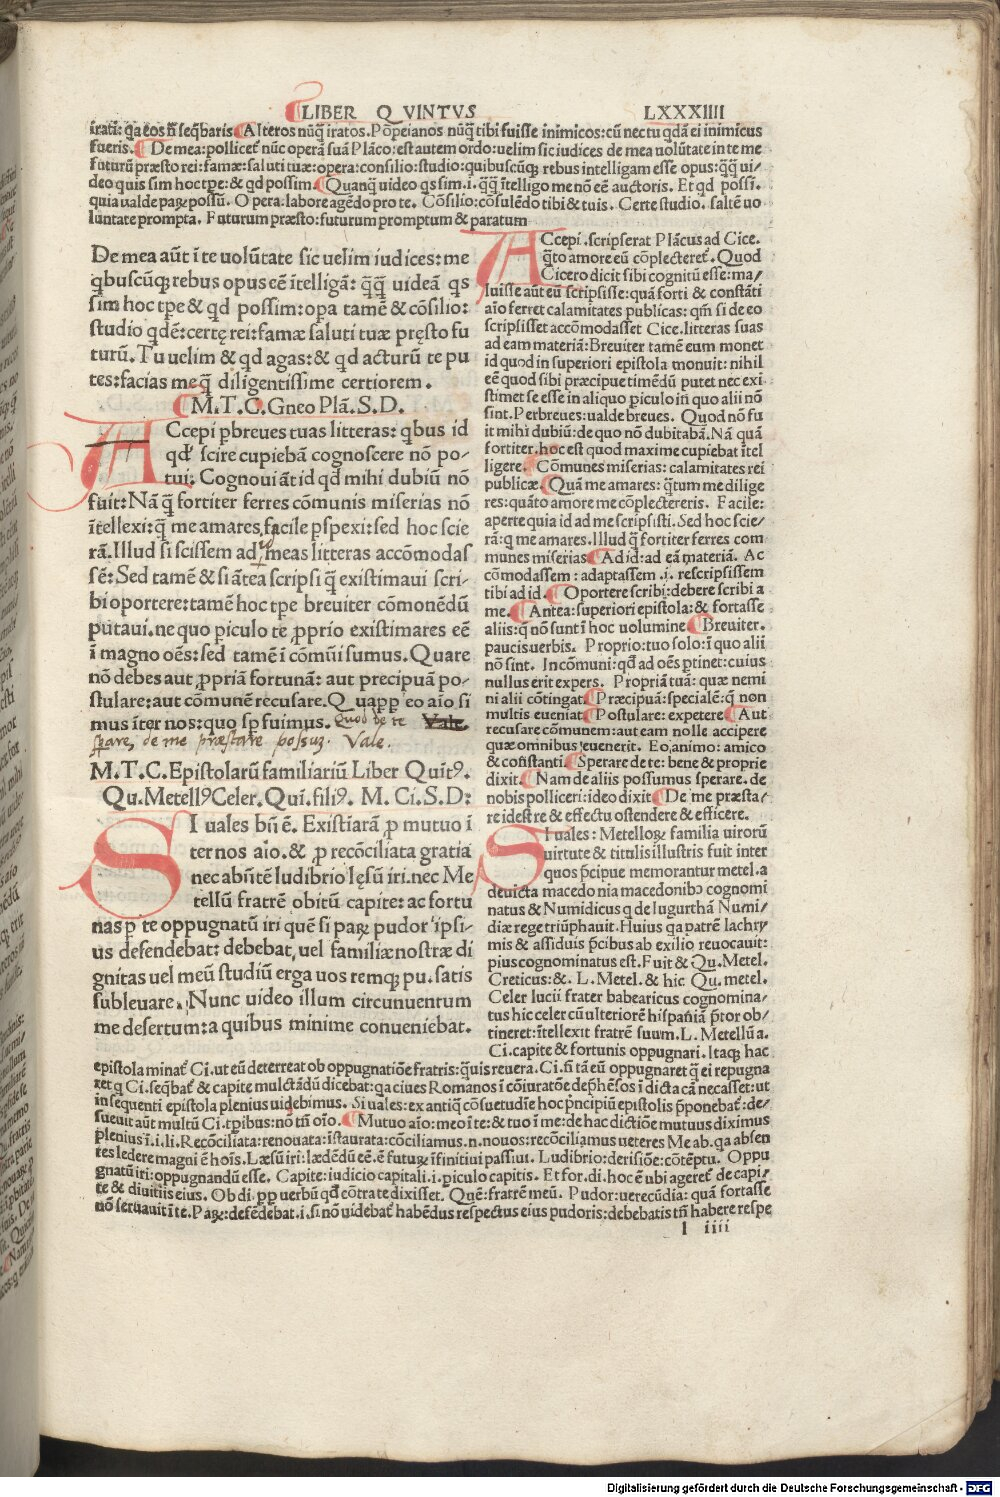 LIBER QVINTVS LXXXIIII
irati: q̃a eos nō seq̃baris. Alteros nūq̃ iratos. Pōpeianos nūq̃ tibi fuisse inimicos: cū nec tu qdā ei inimicus
fueris. De mea: pollicet̃ nūc operā suā Plāco: est autem ordo: uelim sic iudices de mea uolūtate in te me
futurū præsto rei: famæ: saluti tuæ: opera: consilio: studio: quibuscūq; rebus intelligam esse opus: q̃q̃ ui/
deo quis sim hoc tpe: & qd possim. Quanq̃ uideo qs sim .i. q̃q̃ ītelligo me nō eē auctoris. Et qd possī.
quia ualde paꝝ possū. Opera: labore agēdo pro te. Cōsilio: cōsulēdo tibi & tuis. Certe studio. saltē uo
luntate prompta. Futurum præsto: futurum promptum & paratum
De mea aūt ī te uolūtate sic uelim iudices: me
qbuscūq; rebus opus eē ītelligā: q̃q̃ uideā qs
sim hoc tpe & qd possim: opa tamē & cōsilio:
studio qdē: certę rei: famæ saluti tuæ pręsto fu
turū. Tu uelim & qd agas: & qd acturū te pu
tes: facias me q̃ diligentissime certiorem.
M. T. C. Gneo Plā. S. D.
ACcepi pbreues tuas litteras: qbus id
qd' scire cupiebā cognoscere nō po-
tui. Cognoui āt id qd mihi dubiū nō
fuit: Nā q̃ fortiter ferres cōmunis miserias nō
ītellexi: q̃ me amares facile pspexi: sed hoc scie
rā. Illud si scissem ad id meas litteras accōmodas
sē: Sed tamē & si ātea scripsi q̃ existimaui scri-
bi oportere: tamē hoc tpe breuiter cōmonēdū
putaui. ne quo piculo te ꝓprio existimares eē
ī magno oēs: sed tamē ī cōmūi sumus. Quare
nō debes aut ꝓpriā fortunā: aut precipuā po-
stulare: aut cōmunē recusare. Quapp eo aīo si
mus īter nos: quo sp fuimus. Quod de te Vale.
sperare, de me præstare possuᵹ. Vale.
M. T. C. Epistolarū familiariū Liber Quītꝰ.
Qu. Metellꝰ Celer. Qui. filiꝰ. M. Ci. S. D:
SI uales bn̄ ē. Existiarā ꝓ mutuo ī
ter nos aīo. & ꝓ recōciliata gratia
nec abūtē ludibrio lęsū iri. nec Me
tellū fratrē obitū capite: ac fortu
nas p te oppugnatū iri quē si paꝝ pudor ipsi-
us defendebat: debebat, uel familiæ nostræ di
gnitas uel meū studiū erga uos remq; pu. satis
subleuare. Nunc uideo illum circunuentum
me desertum: a quibus minime conueniebat.
ACcepi. scripserat Plācus ad Cice.
q̃to amore eū cōplecteret̃. Quod
Cicero dicit sibi cognitū esse: ma/
luisse aūt eū scripsisse: quā forti & constāti
aīo ferret calamitates publicas: qm̄ si de eo
scripsisset accōmodasset Cice. litteras suas
ad eam materiā: Breuiter tamē eum monet
id quod in superiori epistola monuit: nihil
eē quod sibi præcipue timēdū putet nec exi
stimet se esse in aliquo piculo in̄ quo alii nō
sint. Perbreues: ualde breues. Quod nō fu
it mihi dubiū: de quo nō dubitabā. Nā quā
fortiter. hoc est quod maxime cupiebat ītel
ligere. Cōmunes miserias: calamitates rei
publicæ. Quā me amares: q̃tum me dilige
res: quāto amore me cōplectereris. Facile:
aperte quia id ad me scripsisti. Sed hoc scie/
rā: q me amares. Illud q̃ fortiter ferres com
munes miserias Ad id: ad eā materiā. Ac
cōmodassem: adaptassem .i. rescripsissem
tibi ad id. Oportere scribi: debere scribi a
me. Antea: superiori epistola: & fortasse
aliis: q̃ nō sunt ī hoc uolumine Breuiter.
paucis uerbis. Proprio: tuo solo: ī quo alii
nō sint. In cōmuni: qd' ad oēs ptinet: cuius
nullus erit expers. Propriā tuā: quæ nemi
ni alii cōtingat. Præcipuā: specialē: q̃ non
multis eueniat Postulare: expetere Aut
recusare cōmunem: aut eam nolle accipere
quæ omnibus euenerit. Eo animo: amico
& cōstanti. Sperare de te: bene & proprie
dixit. Nam de aliis possumus sperare. de
nobis polliceri: ideo dixit De me præsta/
re id est re & effectu ostendere & efficere.
SI uales: Metelloꝝ familia uirorū
uirtute & titulis illustris fuit inter
quos p̄cipue memorantur metel. a
deuicta macedonia macedonico cognomi
natus & Numidicus q de Iugurthā Numi/
diæ rege triūphauit. Huius qa patrē lachry
mis & assiduis p̄cibus ab exilio reuocauit:
pius cognominatus est. Fuit & Qu. Metel.
Creticus: &. L. Metel. & hic Qu. metel.
Celer lucii frater babearicus cognomina/
tus hic celer cū ulteriorē hispaniā p̄tor ob/
tineret: ītellexit fratrē suum. L. Metellū a.
Ci. capite & fortunis oppugnari. Itaq; hac
epistola minat̃ Ci. ut eū deterreat ob oppugnatiōe fratris: q̃uis reuera. Ci. fi tā eū oppugnaret q̃ ei repugna
ret q Ci. seq̃bat̃ & capite mulctādū dicebat: qa ciues Romanos ī cōiuratōe dep̄hēsos ī dicta cā necasset: ut
in sequenti epistola plenius uidebimus. Si uales: ex antiq̃ cōsuetudīe hoc p̄ncipiū epistolis p̄ponebat̃: de/
sueuit aūt multū Ci. tpibus: nō tn̄ oīo. Mutuo aīo: meo ī te: & tuo ī me: de hac dictiōe mutuus diximus
plenius ī .i. li. Recōciliata: renouata: īstaurata: cōciliamus .n. nouos: recōciliamus ueteres Me ab. qa absen
tes ledere magni ē hoīs. Læsū iri: lædēdū eē. ē futuꝝ īfinitiui passiui. Ludibrio: derisiōe: cōtēptu. Oppu
gnatū iri: oppugnandū esse. Capite: iudicio capitali .i. piculo capitis. Et for. di. hoc ē ubi ageret̃ de capi/
te & diuitiis eius. Ob di. pp uerbū qd' cōtra te dixisset. Quē: fratrē meū. Pudor: uerecūdia: quā fortasse
nō seruauit ī te. Paꝝ: defēdebat .i. si nō uidebat̃ habēdus respectus eius pudoris: debebatis tn̄ habere respe
l iiii
Digitalisierung gefördert durch die Deutsche Forschungsgemeinschaft - DFG